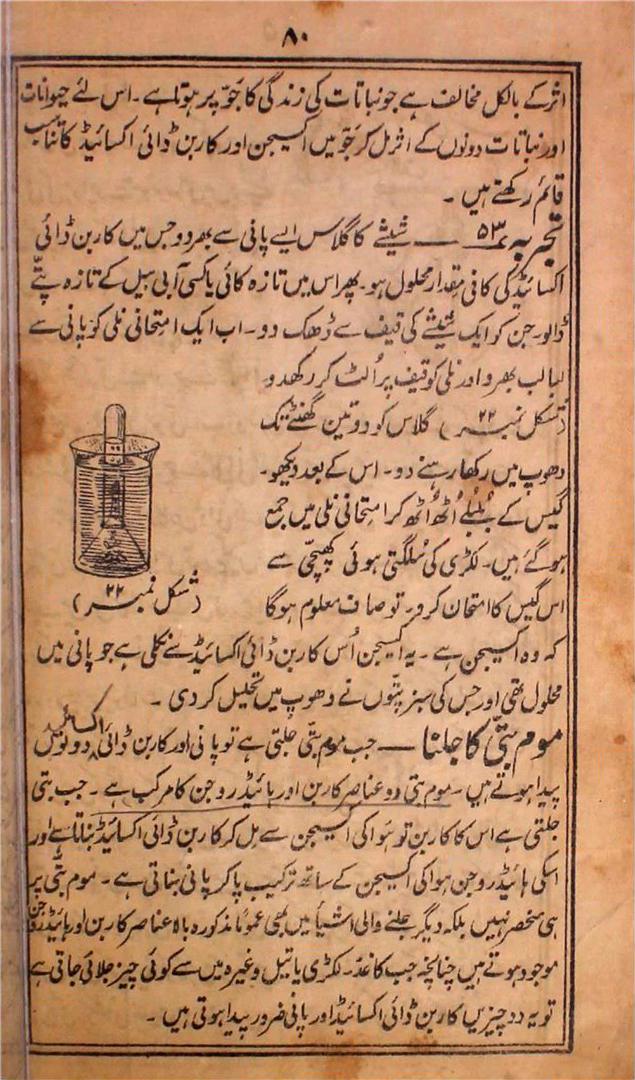 ۸۰
اثر کے بالکل مخالف ہے جو نباتات کی زندگی کا جَوّ پر ہوتا ہے۔ اس لئے حیوانات
اور نباتات دونوں کے اثر مل کر جَوّ میں اکسیجن اور کاربن ڈائی اکسائیڈ کا تناسب
قائم رکھتے ہیں۔
تجربہ ۵۳ — شیشے کا گلاس ایسے پانی سے بھر دو جس میں کاربن ڈائی
اکسائیڈ کی کافی مقدار محلول ہو۔ پھر اس میں تازہ کائی یا کسی آبی بیل کے تازہ پتّے
ڈالو۔ جن کو ایک شیشے کی قیف سے ڈھک دو۔ اب ایک امتحانی نلی کو پانی سے
لبالب بھرو اور نلی کو قیف پر اُلٹ کر رکھدو
(شکل نمبر ۲۲) گلاس کو دو تین گھنٹے تک
دھوپ میں رکھا رہنے دو۔ اس کے بعد دیکھو۔
گیس کے بُلبلے اُٹھ اُٹھ کر امتحانی نلی میں جمع
ہو گئے ہیں۔ لکڑی کی سُلگتی ہوئی کھپچّی سے
اس گیس کا امتحان کرو۔ تو صاف معلوم ہوگا
(شکل نمبر ۲۲)
کہ وہ اکسیجن ہے۔ یہ اکسیجن اُس کاربن ڈائی اکسائیڈ سے نکلی ہے جو پانی میں
محلول تھی اور جس کی سبز پتّوں نے دھوپ میں تحلیل کر دی۔
موم بتّی کا جلنا — جب موم بتّی جلتی ہے تو پانی اور کاربن ڈائی اکسائیڈ دونوں
پیدا ہوتے ہیں۔ موم بتی دو عناصر کاربن اور ہائیڈروجن کا مرکب ہے۔ جب بتی
جلتی ہے اس کا کاربن تو ہوا کی اکسیجن سے مل کر کاربن ڈائی اکسائیڈ بناتا ہے اور
اسکی ہائیڈروجن ہوا کی اکسیجن کے ساتھ ترکیب پا کر پانی بناتی ہے۔ موم بتّی پر
ہی منحصر نہیں بلکہ دیگر جلنے والی اشیأ میں بھی عموماً مذکورہ بالا عناصر کاربن اور ہائیڈروجن
موجود ہوتے ہیں چنانچہ جب کاغذ۔ لکڑی یا تیل وغیرہ میں سے کوئی چیز جلائی جاتی ہے
تو یہ دو چیزیں کاربن ڈائی اکسائیڈ اور پانی ضرور پیدا ہوتی ہیں۔